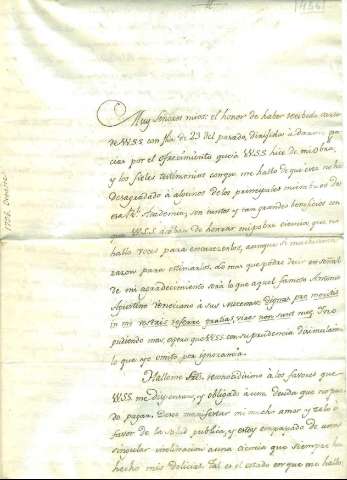 Muy Señores mios: el honor de haber recibido carta
de VSS con fha de 23 del pasado, dirigida à darme gra-
cias por el ofrecimiento que à VSS hice de mi Obra,
y los fieles testimonios con que me hallo de que esta no ha
desagradado à algunos de los principales miembros de
esa Rl. Academia, son tantos y tan grandes beneficios con
VSS de honrar mi pobre ciencia, que no
hallo voces para encarecerlos, aunque si muchisima
razon para estimarlos. Lo mas que podre decir en señal
de mi agradecimiento será lo que aquel famoso Antonio
Agustino Veneciano à sus
in me vestris referre gratias, vires non sunt meæ. Y no
pudiendo mas, espero que VSS con su prudencia disimularàn
lo que yo omito por ignorancia.
Hallome SSs. reconocidisimo à los favores que
VSS. me dispensan, y obligado à una deuda que no pue-
do pagar. Deseo manifestar mi mucho amor y zelo à
favor de la salud publica, y estoy empapado de una
singular inclinacion à una ciencia que siempre ha
hecho mis delicias. Tal es el estado en que me hallo,